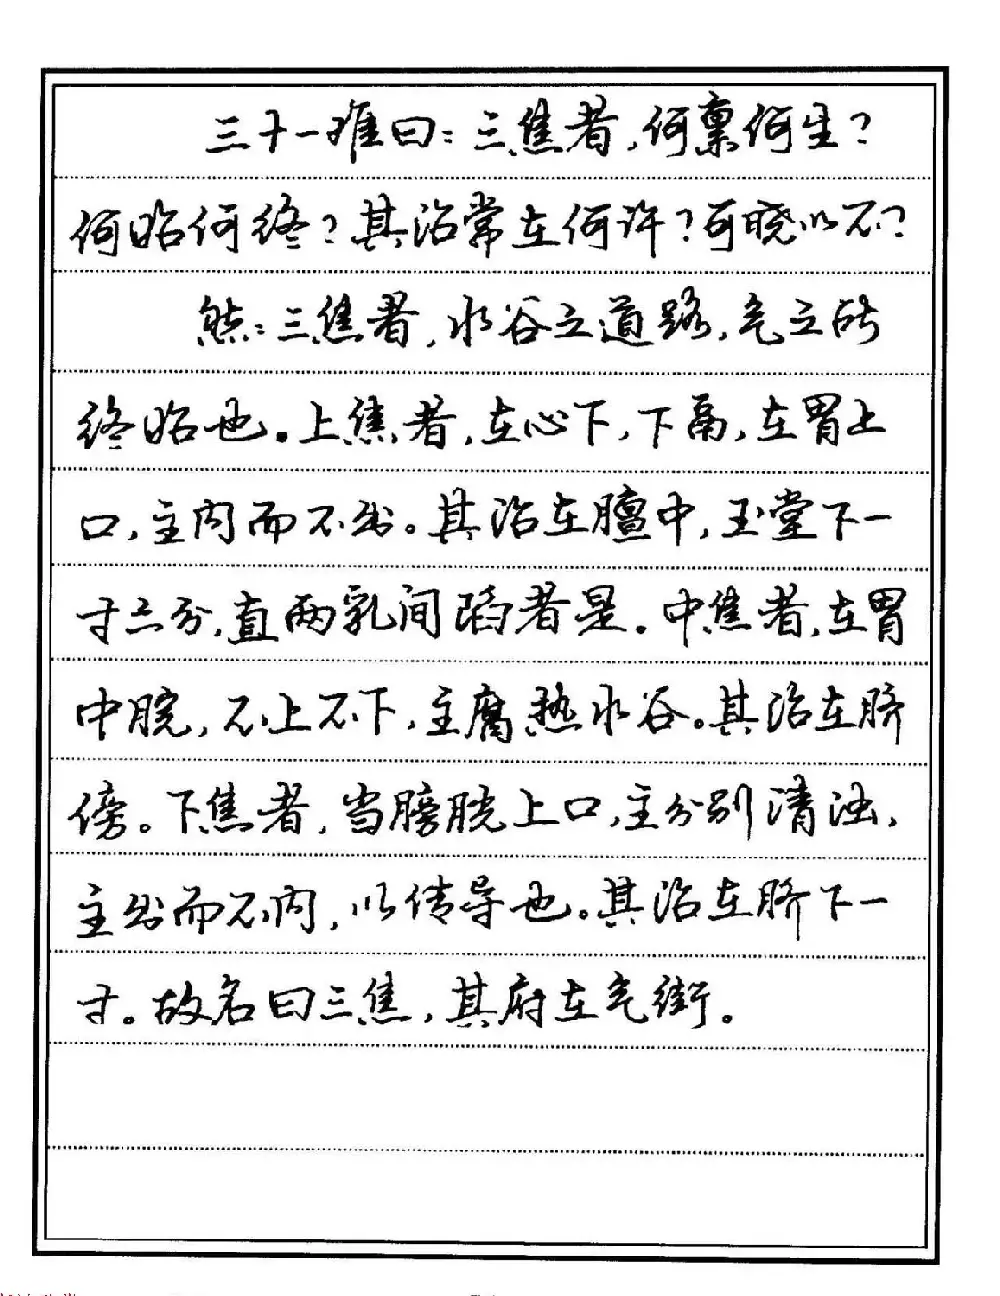 三十一难曰：三焦者，何禀何生？
何始何终？其治常在何许？可晓以不？
然：三焦者，水谷之道路，气之所
终始也。上焦者，在心下，下鬲，在胃上
口，主内而不出。其治在膻中，玉堂下一
寸六分，直两乳间陷者是。中焦者，在胃
中脘，不上不下，主腐热水谷。其治在脐
傍。下焦者，当膀胱上口，主分别清浊，
主出而不内，以传导也。其治在脐下一
寸。故名曰三焦，其府在气街。